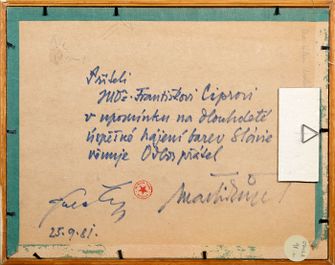 Příteli
JUDr. Františkovi Ciprovi
v upomínku na dlouholeté
úspěšné hájení barev Slávie
věnuje Odbor přátel
25.9.81.